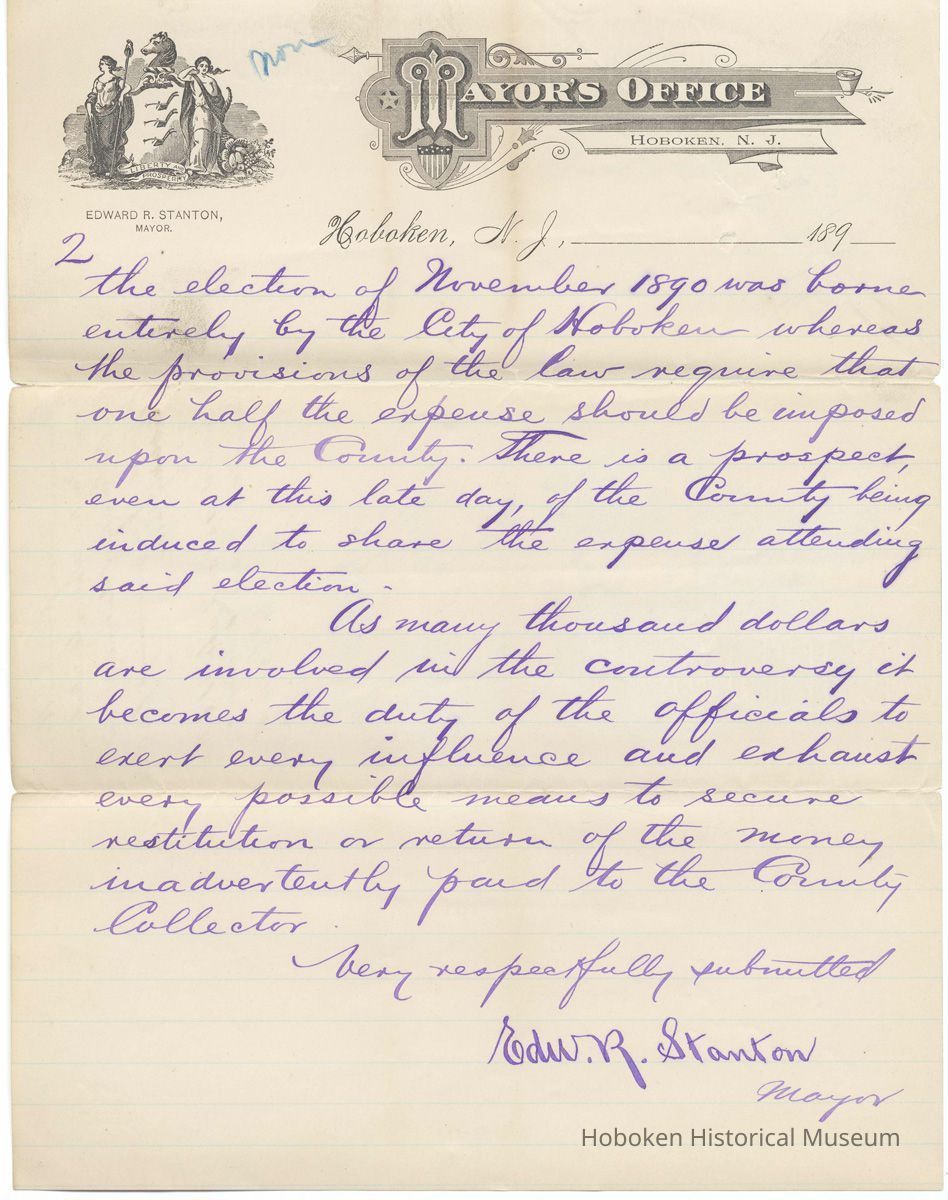 Mon
MAYOR'S OFFICE
HOBOKEN, N. J.
LIBERTY AND
PROSPERITY
EDWARD R. STANTON,
MAYOR.
Hoboken, N. J., 189
2
the election of November 1890 was borne
entirely by the City of Hoboken whereas
the provisions of the law require that
one half the expense should be imposed
upon the County. There is a prospect,
even at this late day, of the County being
induced to share the expense attending
said election.
As many thousand dollars
are involved in the controversy it
becomes the duty of the officials to
exert every influence and exhaust
every possible means to secure
restitution or return of the money
inadvertently paid to the County
Collector.
Very respectfully submitted
Edw. R. Stanton
Mayor
Hoboken Historical Museum